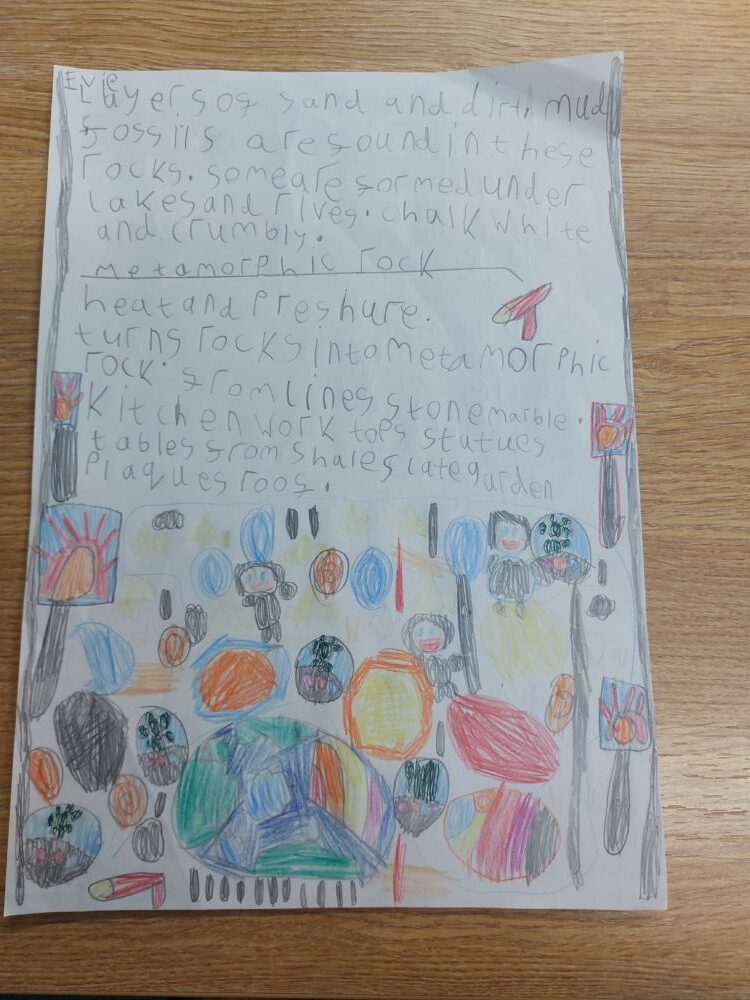 Evie
Layers of sand and dirt, mud
fossils are found in these
rocks. some are formed under
lakes and rives. chalk white
and crumbly.
metamorphic rock
heat and preshure.
turns rocks into metamorphic
rock. from lines stone marble.
Kitchen work tops statues
tables from shale slate garden
Plaques roof.